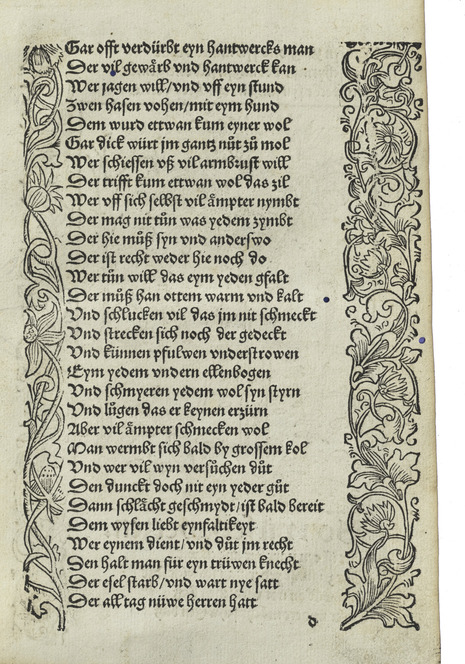 Gar offt verdürbt eyn hantwercks man
Der vil gewärb vnd hantwerck kan
Wer jagen will/vnd vff eyn stund
Zwen hasen vohen/mit eym hund
Dem wurd ettwan kum eyner wol
Gar dick würt jm gantz nüt zů mol
Wer schiessen vß vil armbrust will
Der trifft kum ettwan wol das zil
Wer vff sich selbst vil ämpter nymbt
Der mag nit tůn was yedem zymbt
Der hie můß syn vnd anderswo
Der ist recht weder hie noch do
Wer tůn will das eym yeden gfalt
Der můß han ottem warm vnd kalt
Vnd schlucken vil das jm nit schmeckt
Vnd strecken sich noch der gedeckt
Vnd künnen pfulwen vnderstrowen
Eym yedem vndern ellenbogen
Vnd schmyeren yedem wol syn styrn
Vnd lůgen das er keynen erzürn
Aber vil ämpter schmecken wol
Man wermbt sich bald by grossem kol
Vnd wer vil wyn versůchen důt
Den dunckt doch nit eyn yeder gůt
Dann schlächt geschmydt/ist bald bereit
Dem wysen liebt eynfaltikeyt
Wer eynem dient/vnd důt jm recht
Den halt man für eyn trüwen knecht
Der esel starb/vnd wart nye satt
Der all tag nüwe herren hatt
d